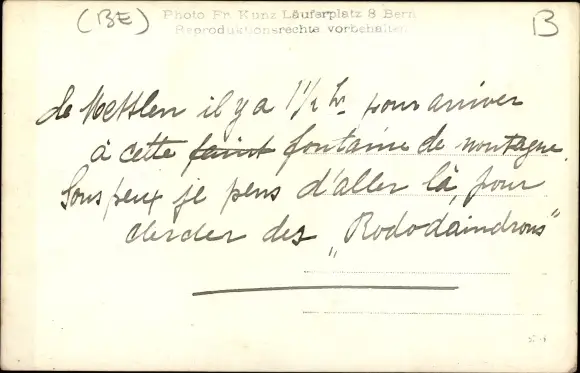 (BE) Photo Fr. Kunz Läuferplatz 8 Bern B
Reproduktionsrechte vorbehalten
de Mettlen il y a 1 1/2 hr. pour arriver
à cette faint fontaine de montagne.
Sous peux je pens d'aller là, pour
chercher des „Rododaindrons"